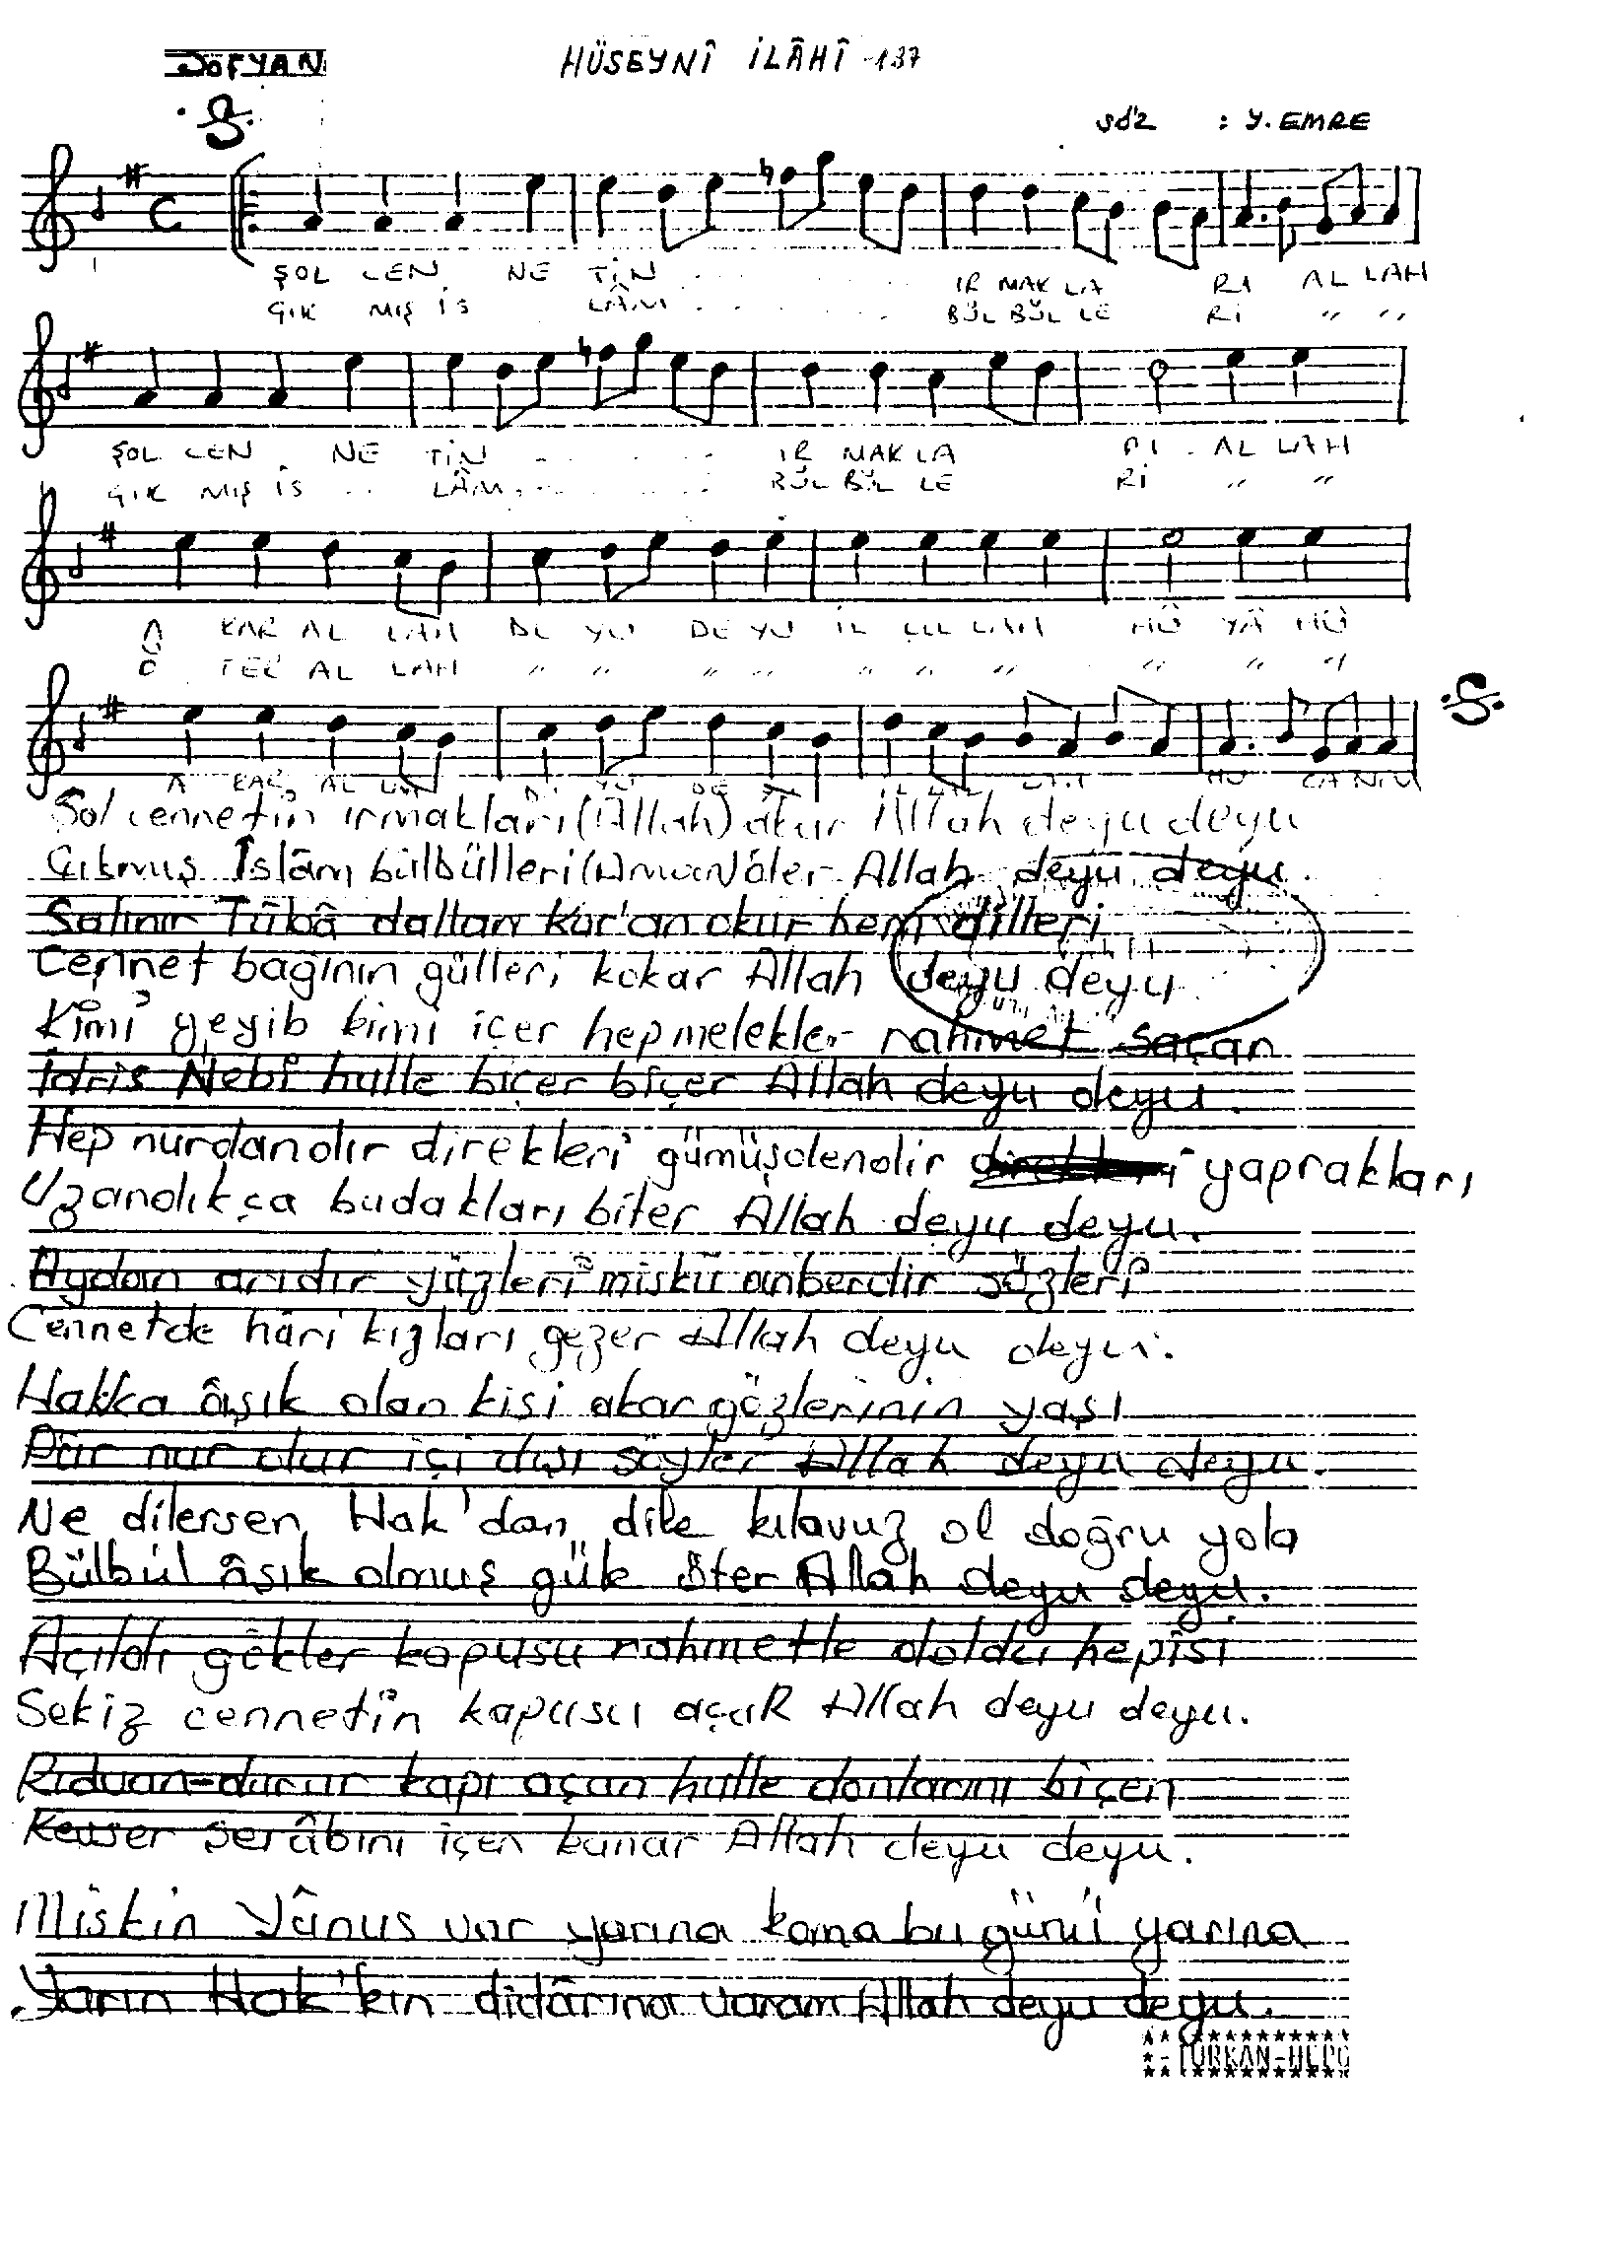 SOFYAN
HÜSEYNÎ İLÂHÎ -137
SÖZ : Y. EMRE
ŞOL CEN NE TİN IR MAK LA RI AL LAH
ÇIK MIŞ İS LÂM BÜL BÜL LE RI " "
ŞOL CEN NE TİN IR MAK LA RI AL LAH
ÇIK MIŞ İS LÂM BÜL BÜL LE Rİ " "
A KAR AL LAH DE YU DE YU İL LAH HÛ YÂ HÛ
Ö TER AL LAH " " " " " " " " " "
A KAR AL YU DE HU CA NIM
Şol cennetin ırmakları (Allah) akar Allah deyu deyu
Çıkmış İslâm bülbülleri (Aman) öter Allah deyu deyu.
Salınır Tûbâ dalları Kur'an okur hem dilleri
Cennet bağının gülleri kokar Allah deyu deyu
Kimi yeyib kimi içer hep melekler rahmet saçar
İdris Nebî hulle biçer biçer Allah deyu deyu.
Hep nurdandır direkleri gümüşdendir yaprakları
Uzandıkça budakları biter Allah deyu deyu.
Aydan arıdır yüzleri miskü anberdir sözleri
Cennetde hûri kızları gezer Allah deyu deyu.
Hakka âşık olan kişi akar gözlerinin yaşı
Pür nur olur içi dışı söyler Allah deyu deyu.
Ne dilersen Hak'dan dile kılavuz ol doğru yola
Bülbül âşık olmuş güle öter Allah deyu deyu.
Açıldı gökler kapusu rahmetle doldu hepisi
Sekiz cennetin kapusu açık Allah deyu deyu.
Rıdvan-durur kapı açan hulle donlarını biçen
Kevser şerâbını içen kanar Allah deyu deyu.
Miskin Yûnus var yarına koma bu günü yarına
Yarın Hak'kın didârına varam Allah deyu deyu.